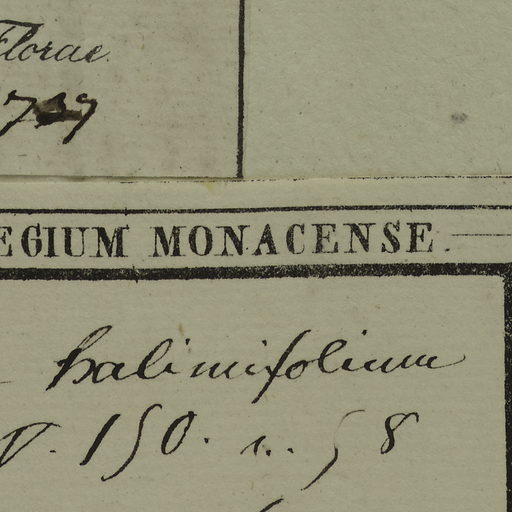 Florae
EGIUM MONACENSE.
halimifolium
p. 150. n. 58